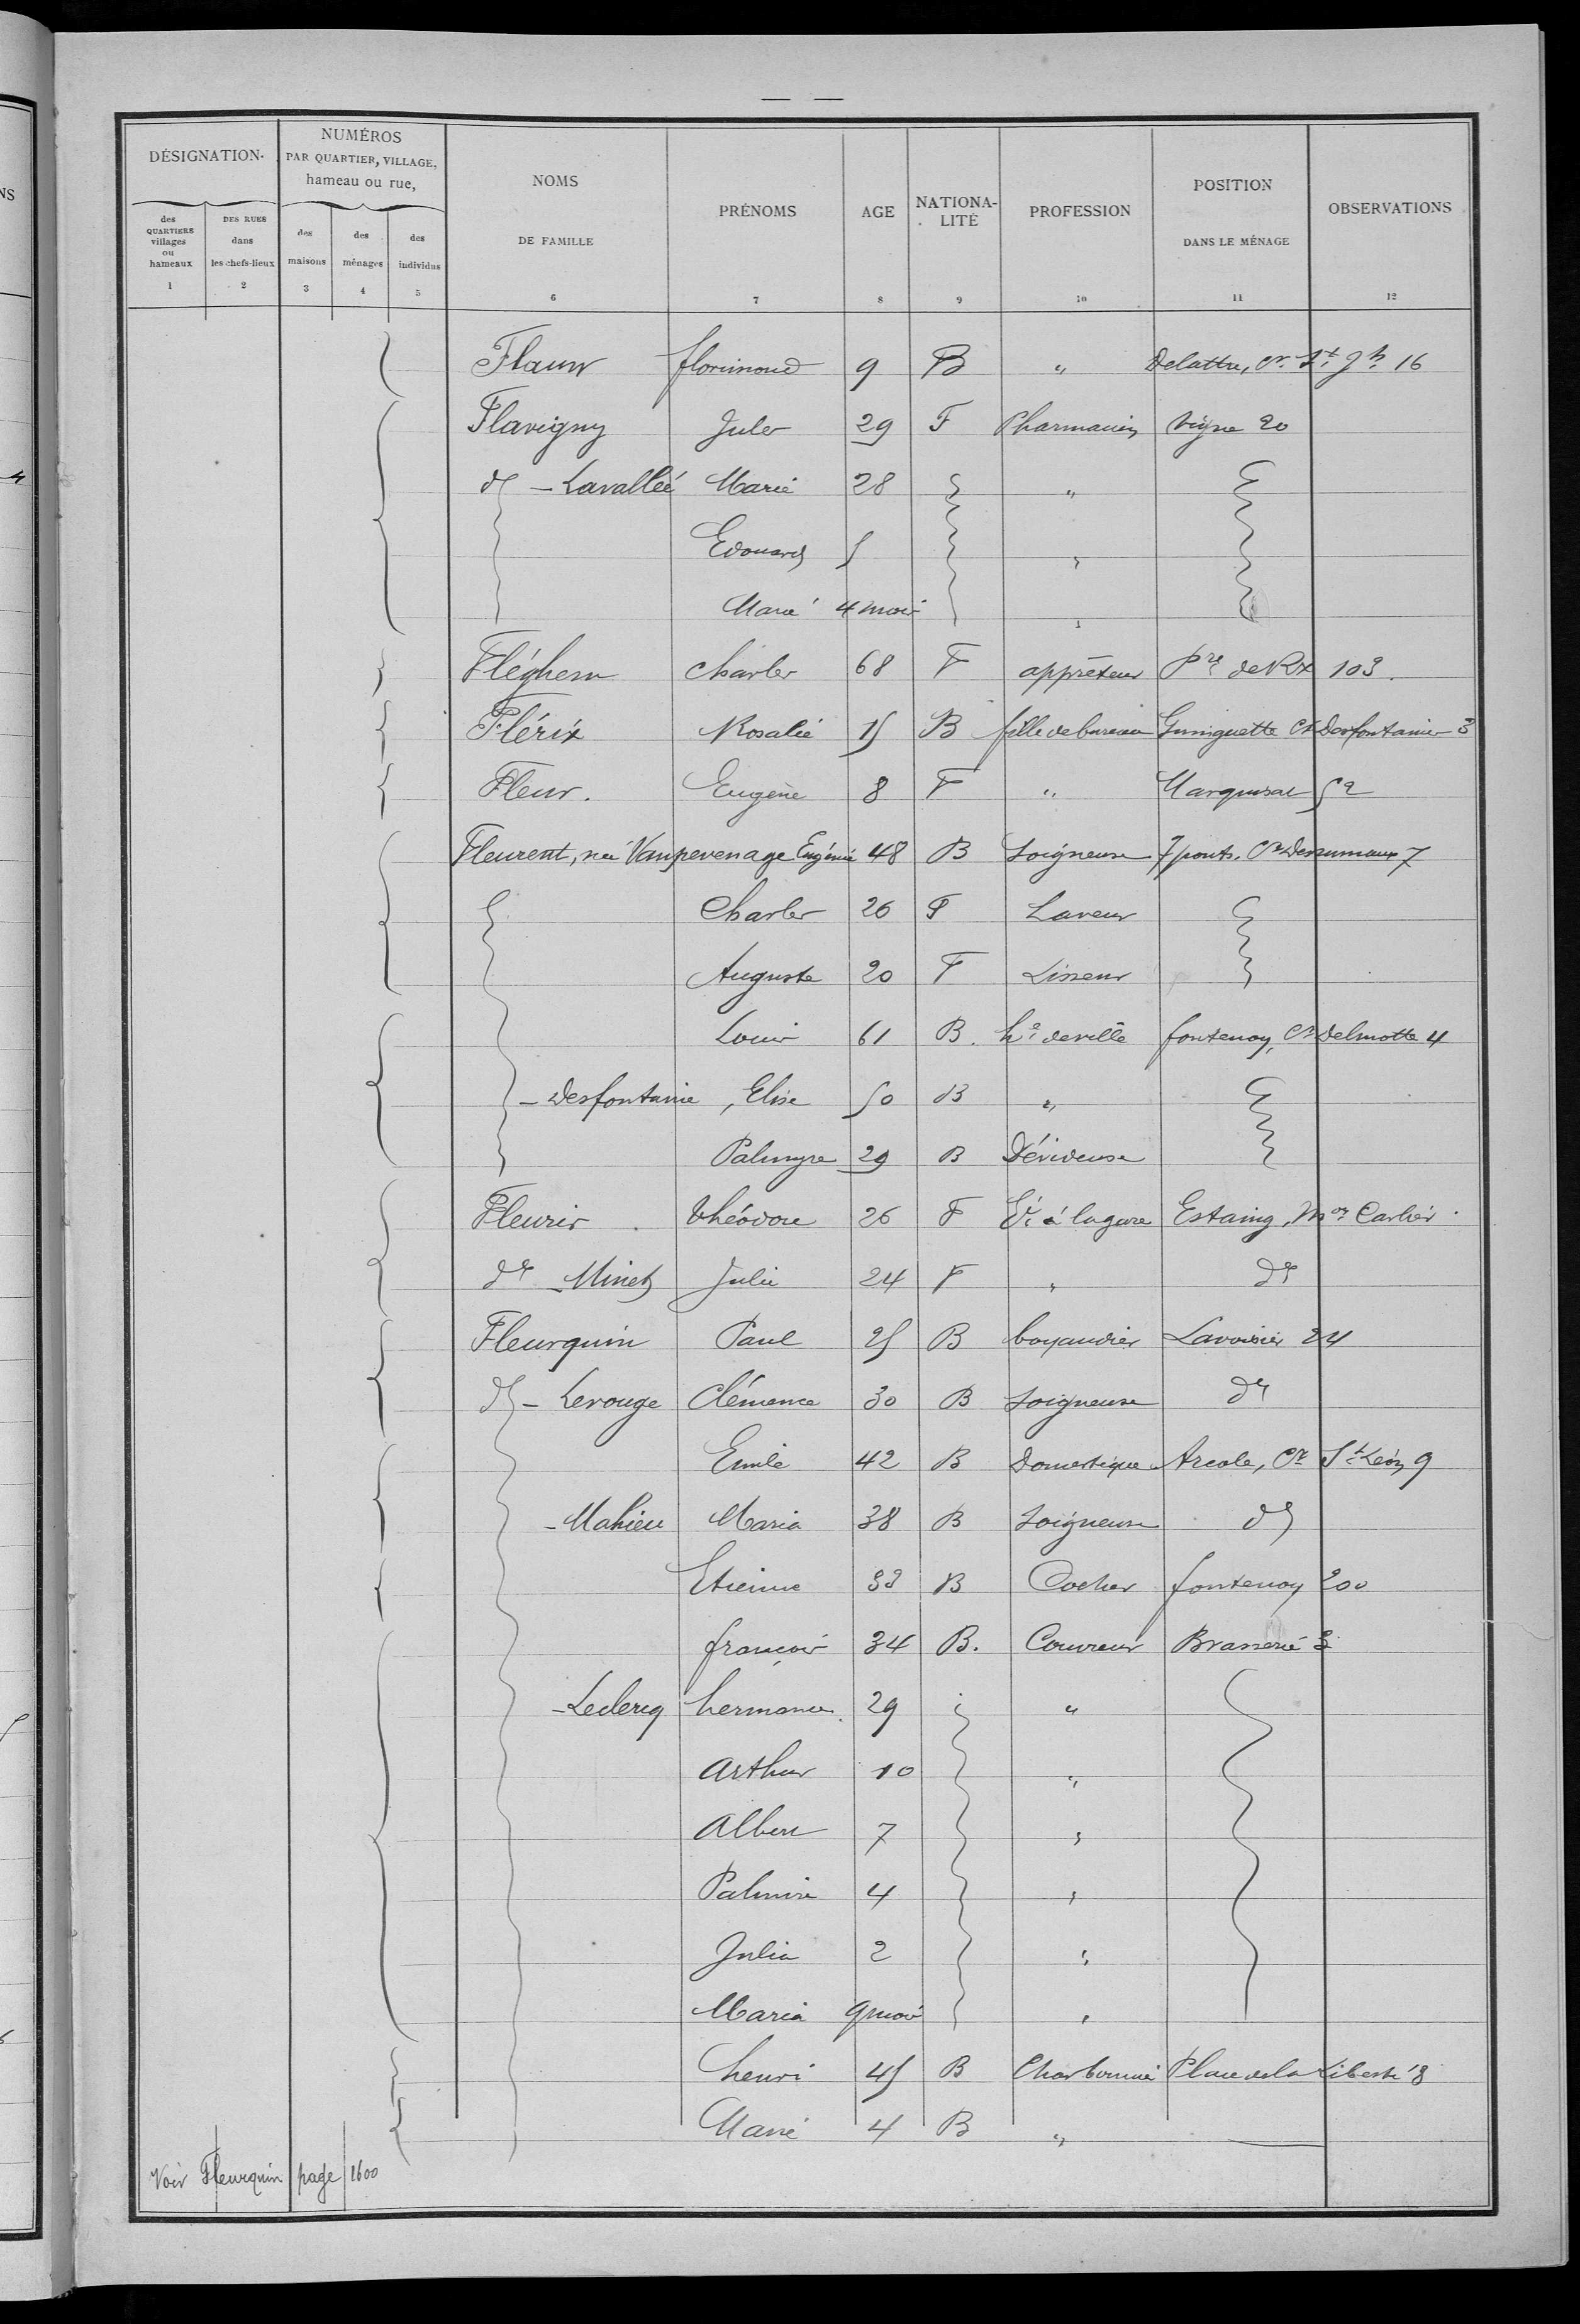 — —
DÉSIGNATION
NUMÉROS PAR QUARTIER, VILLAGE, hameau ou rue,
NOMS DE FAMILLE
PRÉNOMS
AGE
NATIONALITÉ
PROFESSION
POSITION DANS LE MÉNAGE
OBSERVATIONS
des QUARTIERS villages ou hameaux
DES RUES dans les chefs-lieux
des maisons
des ménages
des individus
1 2 3 4 5 6 7 8 9 10 11 12
florimond 9 B " Delattre, Cr. St Jh 16
Flavigny Jules 29 F Pharmacien Vigne 20
d° - Lavallée Marie 28 "
Edouard 5 "
Marie 4 mois "
Fléghem Charles 68 F apprêteur Pre de Rx 103.
Flérix Rosalie 15 B fille de bureau Guinguette Cr Desfontaines 3
Fleur. Eugène 8 F " Marquisat 52
Fleurent, née Vanpevenage Eugénie 48 B Soigneuse 7 ponts, Cr Dessumaux 7
Charles 26 F Laveur
Auguste 20 F Lisseur
Louis 61 B. he de ville fontenoy, Cr Delmotte 4
- Desfontaine, Elise 50 B "
Palmyre 29 B Dévideuse
Fleuris Théodore 26 F Eé à la gare Estaing, Mon Carlier
d° Minet Julie 24 F " d°
Fleurquin Paul 25 B boyaudier Lavoisier 24
d° - Lerouge Clémence 30 B Soigneuse d°
Emile 42 B Domestique Arcole, Cr St Léon 9
- Mahieu Maria 38 B Soigneuse d°
Etienne 33 B Cocher fontenoy 200
françois 34 B. Couvreur Brasserie 3
- Leclercq hermance 29 "
Arthur 10 "
Albert 7 "
Palmire 4 "
Julia 2 "
Maria 9 mois "
henri 45 B Charbonnier Place de la Liberté 8
Marie 4 B "
Voir Fleurquin page 1600